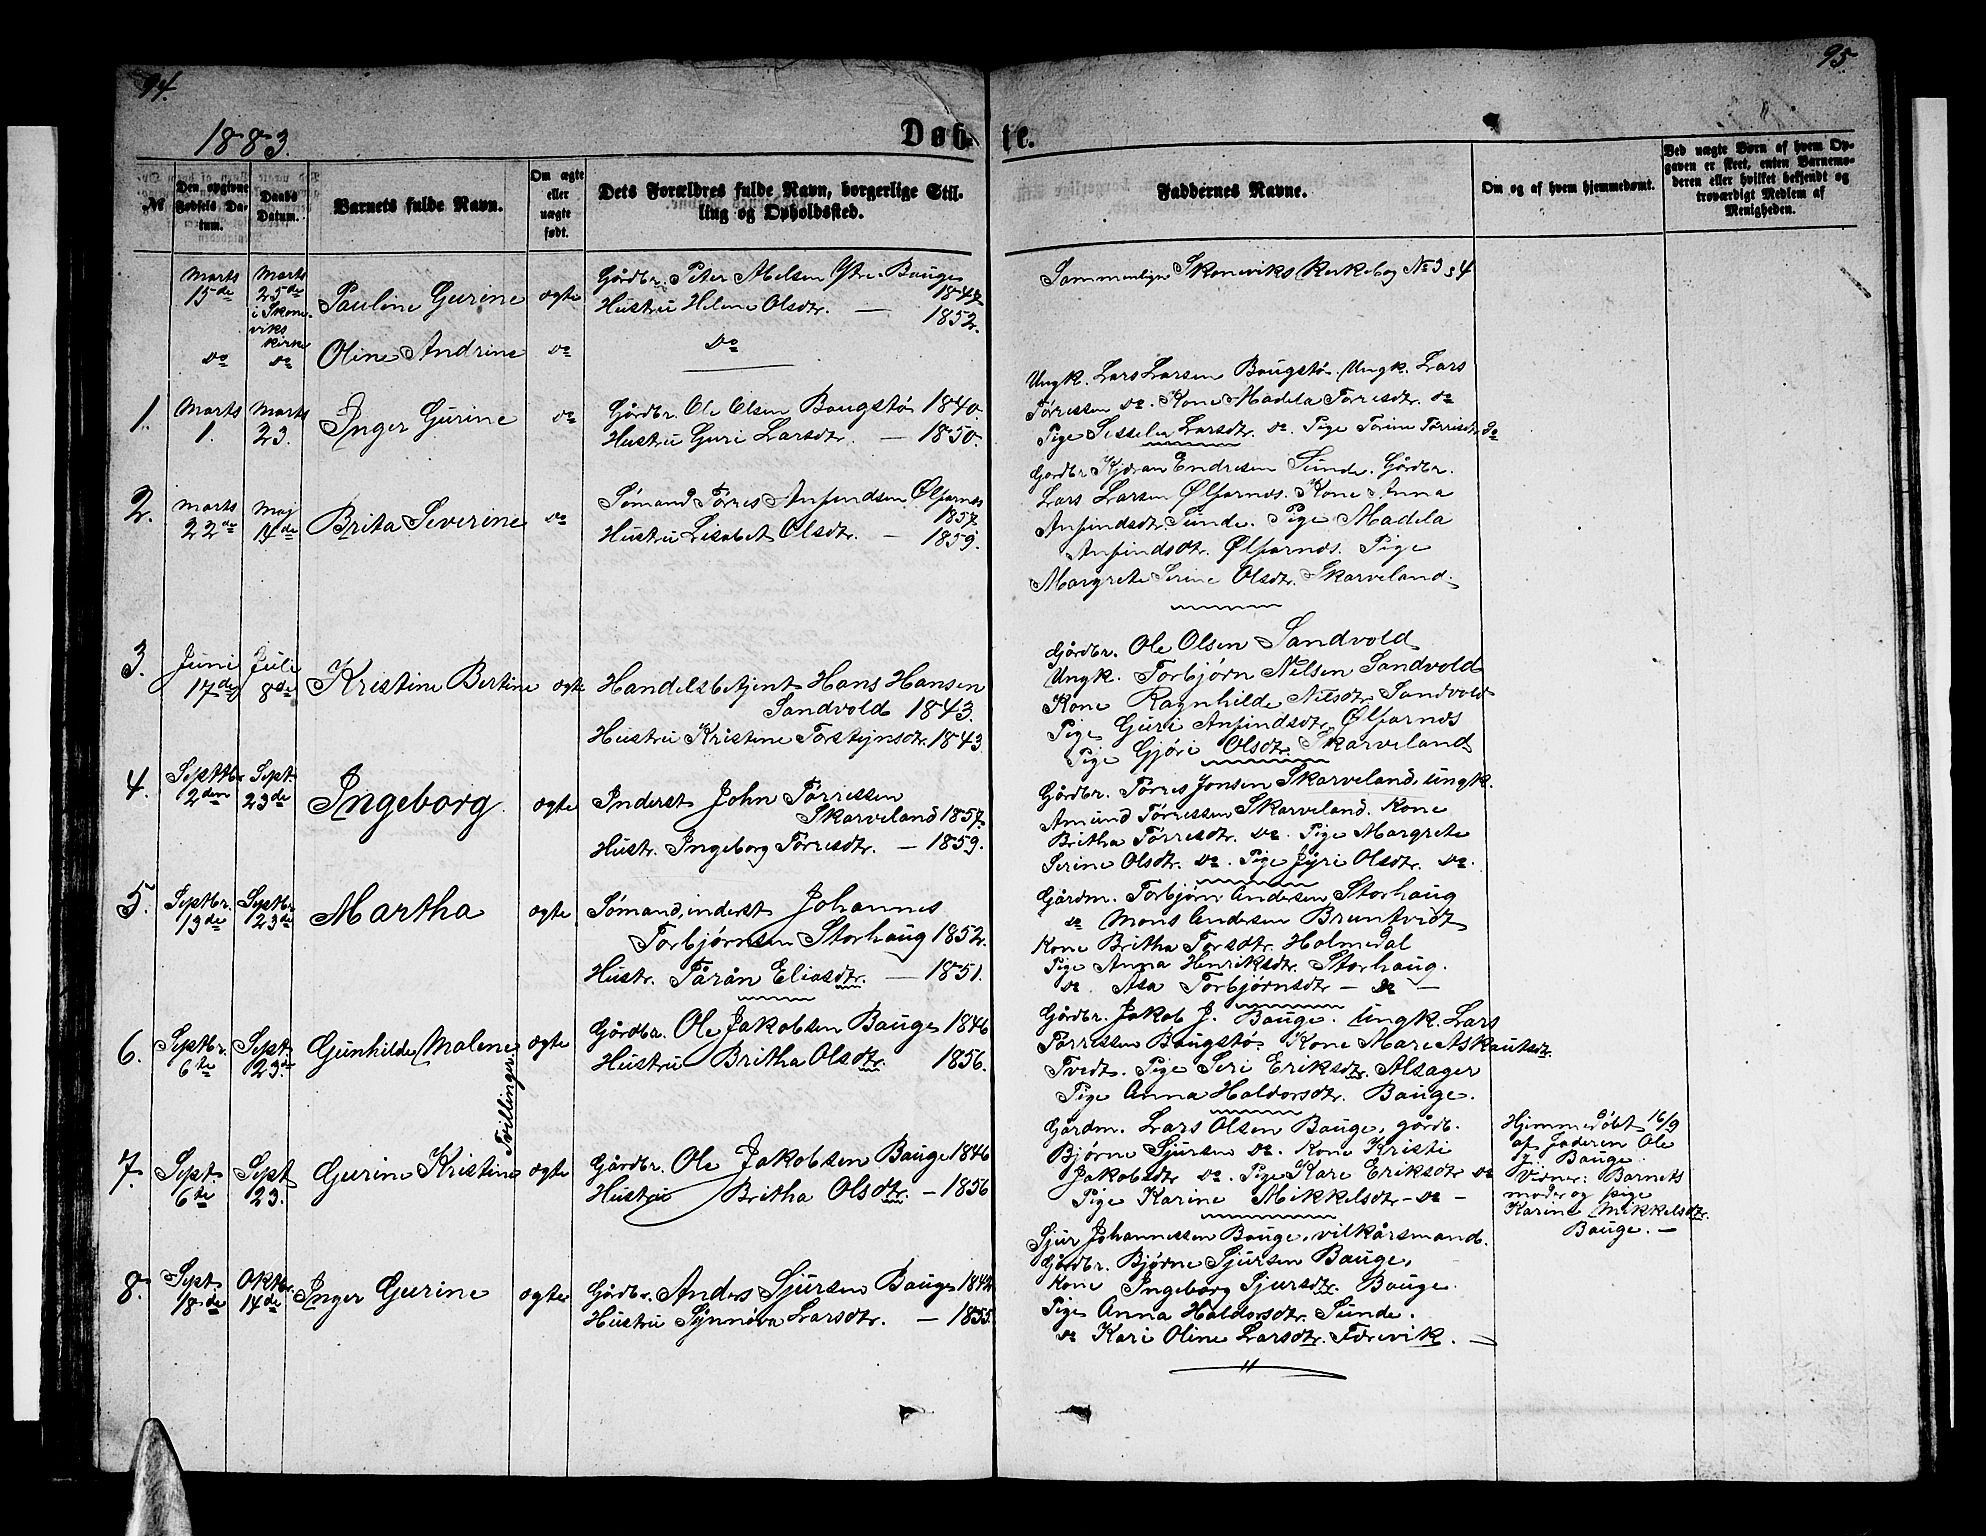 94.
95
1883.
Døb-
te.
№
Den opgivne Fødsels Datum.
Daabs Datum.
Barnets fulde Navn.
Om ægte eller uægte født.
Dets Forældres fulde Navn, borgerlige Stilling og Opholdssted.
Faddernes Navne.
Om og af hvem hjemmedøbt.
Ved uægte Børn af hvem Opgaven er skeet, enten Barnemoderen eller hvilket bekjendt og troværdigt Medlem af Menigheden.
Marts 15de
Marts 25de i Skoneviks Kirke
Pauline Gurine
ægte
Gårdbr. Peter Abelsen Ytre Bauge 1847
Hustru Helene Olsdtr. — 1852.
Sammenlign Skoneviks Kirkebog No 3 & 4
do
do
Oline Andrine
do
do
1.
Marts 1.
Marts 23.
Inger Gurine
do
Gårdbr. Ole Olsen Baugstø 1840.
Hustru Guri Larsdtr. — 1850.
Ungk. Lars Larsen Baugstø. Ungk. Lars
Tørressen do. Kone Madela Tørresdtr. do
Pige Sisselia Larsdtr. do. Pige Torine Tørrisdtr do
2.
Marts 22de
Maj 14de
Brita Severine
do
Sømand Tørres Anfindsen Ølfarnes 1857
Hustru Lisabet Olsdtr. — 1859.
Gårdbr. Endresen Sunde. Gårdbr.
Lars Larsen Ølfarnes. Kone Anna
Anfindsdtr. Sunde. Pige Madela
Anfindsdtr. Ølfarnes. Pige
Margrete Serine Olsdtr. Skarveland.
3.
Juni 17de
Juli 8de
Kristine Bertine
ægte
Handelsbetjent Hans Hansen
Sandvold 1843.
Hustru Kristine Torstejnsdtr. 1843.
Gårdbr. Ole Olsen Sandvold
Ungk. Torbjørn Nilsen Sandvold
Kone Ragnhilde Nilsdtr. Sandvold
Pige Guri Anfindsdtr. Ølfarnes
Pige Gjøri Olsdtr. Skarveland
4.
Septbr 2den
Sept. 23de
Ingeborg
ægte
Inderst John Tørressen
Skarveland 1857.
Hustr. Ingeborg Tørresdtr. — 1859.
Gårdbr. Tørres Jonsen Skarveland, ungk.
Amund Tørressen Skarveland. Kone
Britha Tørresdtr. do. Pige Margrete
Serine Olsdtr. do. Pige Jyri Olsdtr. do.
5.
Septbr. 13de
Septbr. 23de
Martha
ægte
Sømand, inderst Johannes
Torbjørnsen Storhaug 1852.
Hustr. Tårån Eliasdtr. — 1851.
Gårdm. Torbjørn Andersen Storhaug
do Mons Andersen Bruntvedt
Kone Britha Torsdtr. Holmedal
Pige Anna Henriksdtr. Storhaug.
do. Asa Torbjørnsdtr — do —
6.
Septbr. 6te
Sept. 23de
Gunhilde Malene
Tvillinger.
ægte
Gårdbr. Ole Jakobsen Bauge 1846
Hustru Britha Olsdtr. 1856.
Gårdbr. Jakob J. Bauge. Ungk. Lars
Tørressen Baugstø. Kone Mari Askautsdtr.
Tvedt. Pige Seri Eriksdtr. Alsager
Pige Anna Haldorsdtr. Bauge.
7.
Sept. 6te
Sept 23.
Gurine Kristine
ægte
Gårdbr. Ole Jakobsen Bauge 1846
Hustru Britha Olsdtr. — 1856
Gårdm. Lars Olsen Bauge, gårdb.
Bjørne Sjursen do. Kone Kristi
Jakobsdtr do. Pige Kari Eriksdtr do
Pige Karine Mikkelsdtr — do —
Hjemmedøbt 16/9
af Faderen Ole
J. Bauge.
Vidner: Barnets
moder og pige
Karine Mikkelsdtr.
Bauge. —
8.
Sept. 18de
Oktbr. 14de
Inger Gurine
ægte
Gårdbr. Anders Sjursen Bauge 1842
Hustru Synnøva Larsdtr. — 1855.
Sjur Johannessen Bauge, vilkårsmand.
Gårdbr. Bjørne Sjursen Bauge,
Kone Ingeborg Sjursdtr. Bauge
Pige Anna Haldorsdtr. Sunde.
do Kari Oline Larsdtr. Førevik. —